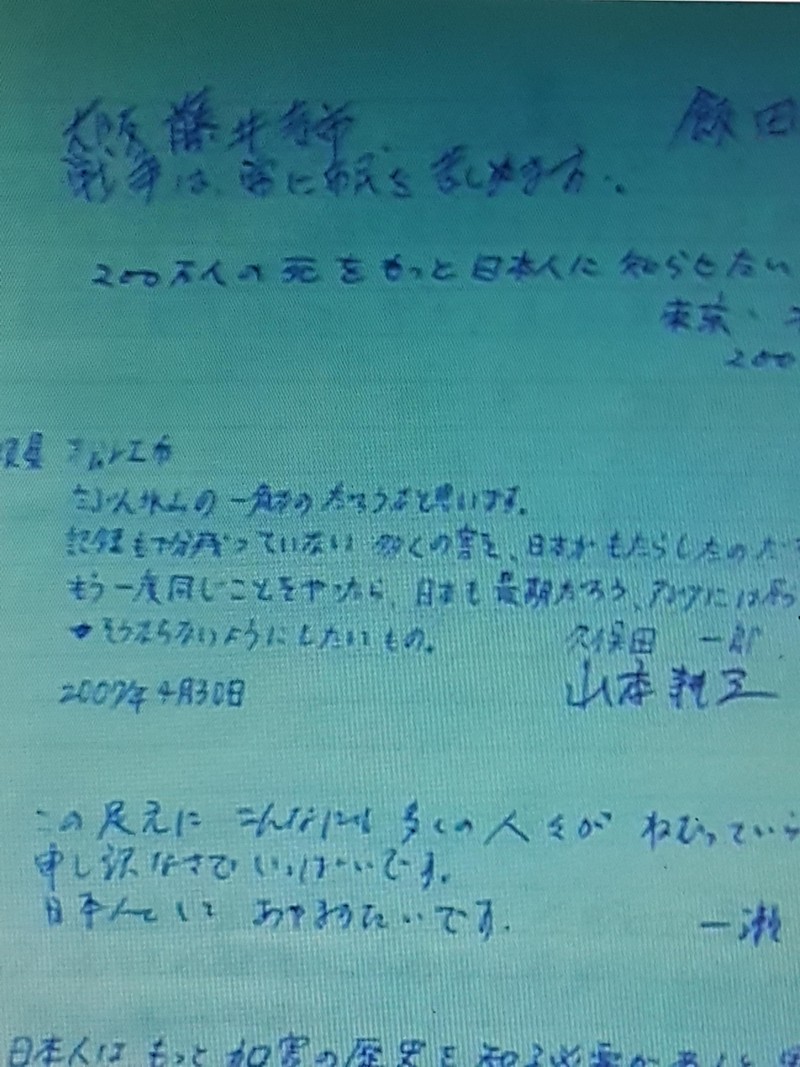 大阪 藤井
飯田
戦争は、常に市民を苦しめる方。
200万人の死をもっと日本人に知らせたい
東京・
200
の一角なのだろうなと思います。
記録も十分残っていない 多くの害を、日本がもたらしたのだ
もう一度同じことをやったら、日本も最期だろう、アジアには
そうならないようにしたいもの。
久保田 一郎
2007年4月30日
山本
この足元に こんなにも 多くの人々が ねむっていら
申し訳なさで いっぱいです。
日本人として あやまりたいです。
一瀬
日本人は もっと 加害の歴史を 知る必要があると